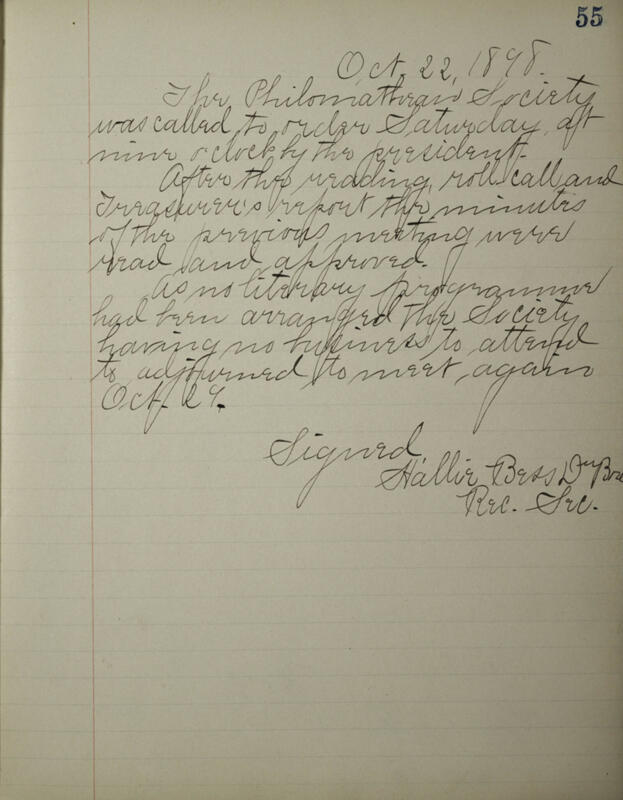 55
Oct. 22, 1898.
The Philomathean Society
was called to order Saturday, at
nine o'clock by the president.
After the reading, roll call and
Treasurer's report the minutes
of the previous meeting were
read and approved.
As no literary programme
had been arranged the Society
having no business to attend
to adjourned to meet again
Oct. 29.
Signed,
Hallie Bess
Rec. Sec.